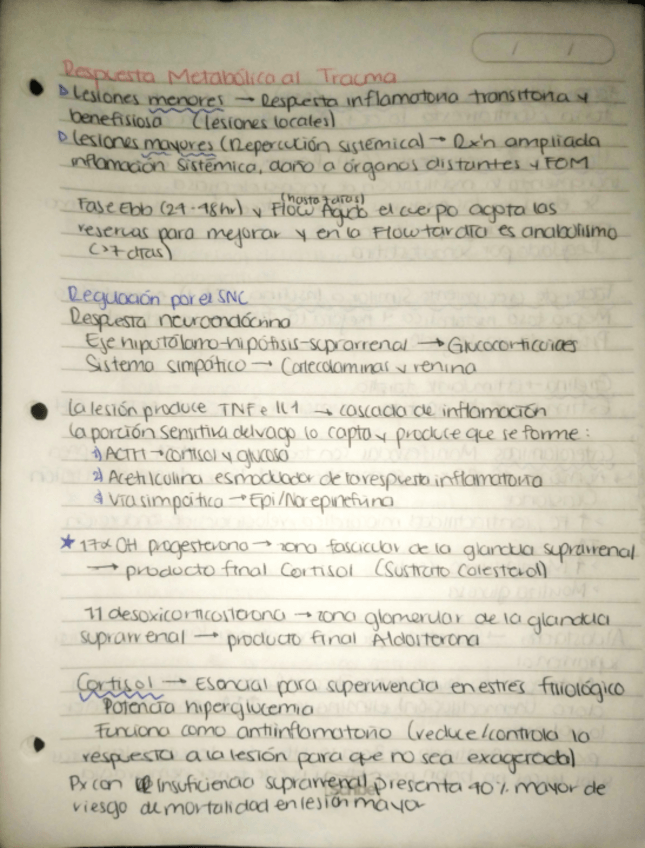 Respuesta Metabólica al Trauma
Lesiones menores → Respuesta inflamatoria transitoria y
benefisiosa (lesiones locales)
Lesiones mayores (Repercución sistémica) → Rx'n ampliada
inflamación sistémica, daño a órganos distantes y FOM
(hasta 7 días)
Fase Ebb (24-48hr) y Flow Agudo el cuerpo agota las
reservas para mejorar y en la Flow tardía es anabolismo
(>7 días)
Regulación por el SNC
Respuesta neuroendócrina
Eje hiputálamo-hipófisis-suprarrenal → Glucocorticoides
Sistema simpático → Catecolaminas y renina
La lesión produce TNF e IL1 → cascada de inflamación
La porción sensitiva del vago lo capta y produce que se forme:
1) ACTH → cortisol y glucosa
2) Acetilcolina es modulador de la respuesta inflamatoria
3) Vía simpática → Epi/Norepinefrina
★ 17α OH progesterona → zona fascicular de la glandula suprarrenal
→ producto final Cortisol (Sustrato Colesterol)
11 desoxicorticosterona → zona glomerular de la glandula
suprarrenal → producto final Aldosterona
Cortisol → Esencial para supervivencia en estrés fisiológico
Potencia hiperglucemia
Funciona como antiinflamatorio (reduce/controla la
respuesta a la lesión para que no sea exagerada)
Px con Insuficiencia suprarrenal presenta 40% mayor de
riesgo de mortalidad en lesión mayor